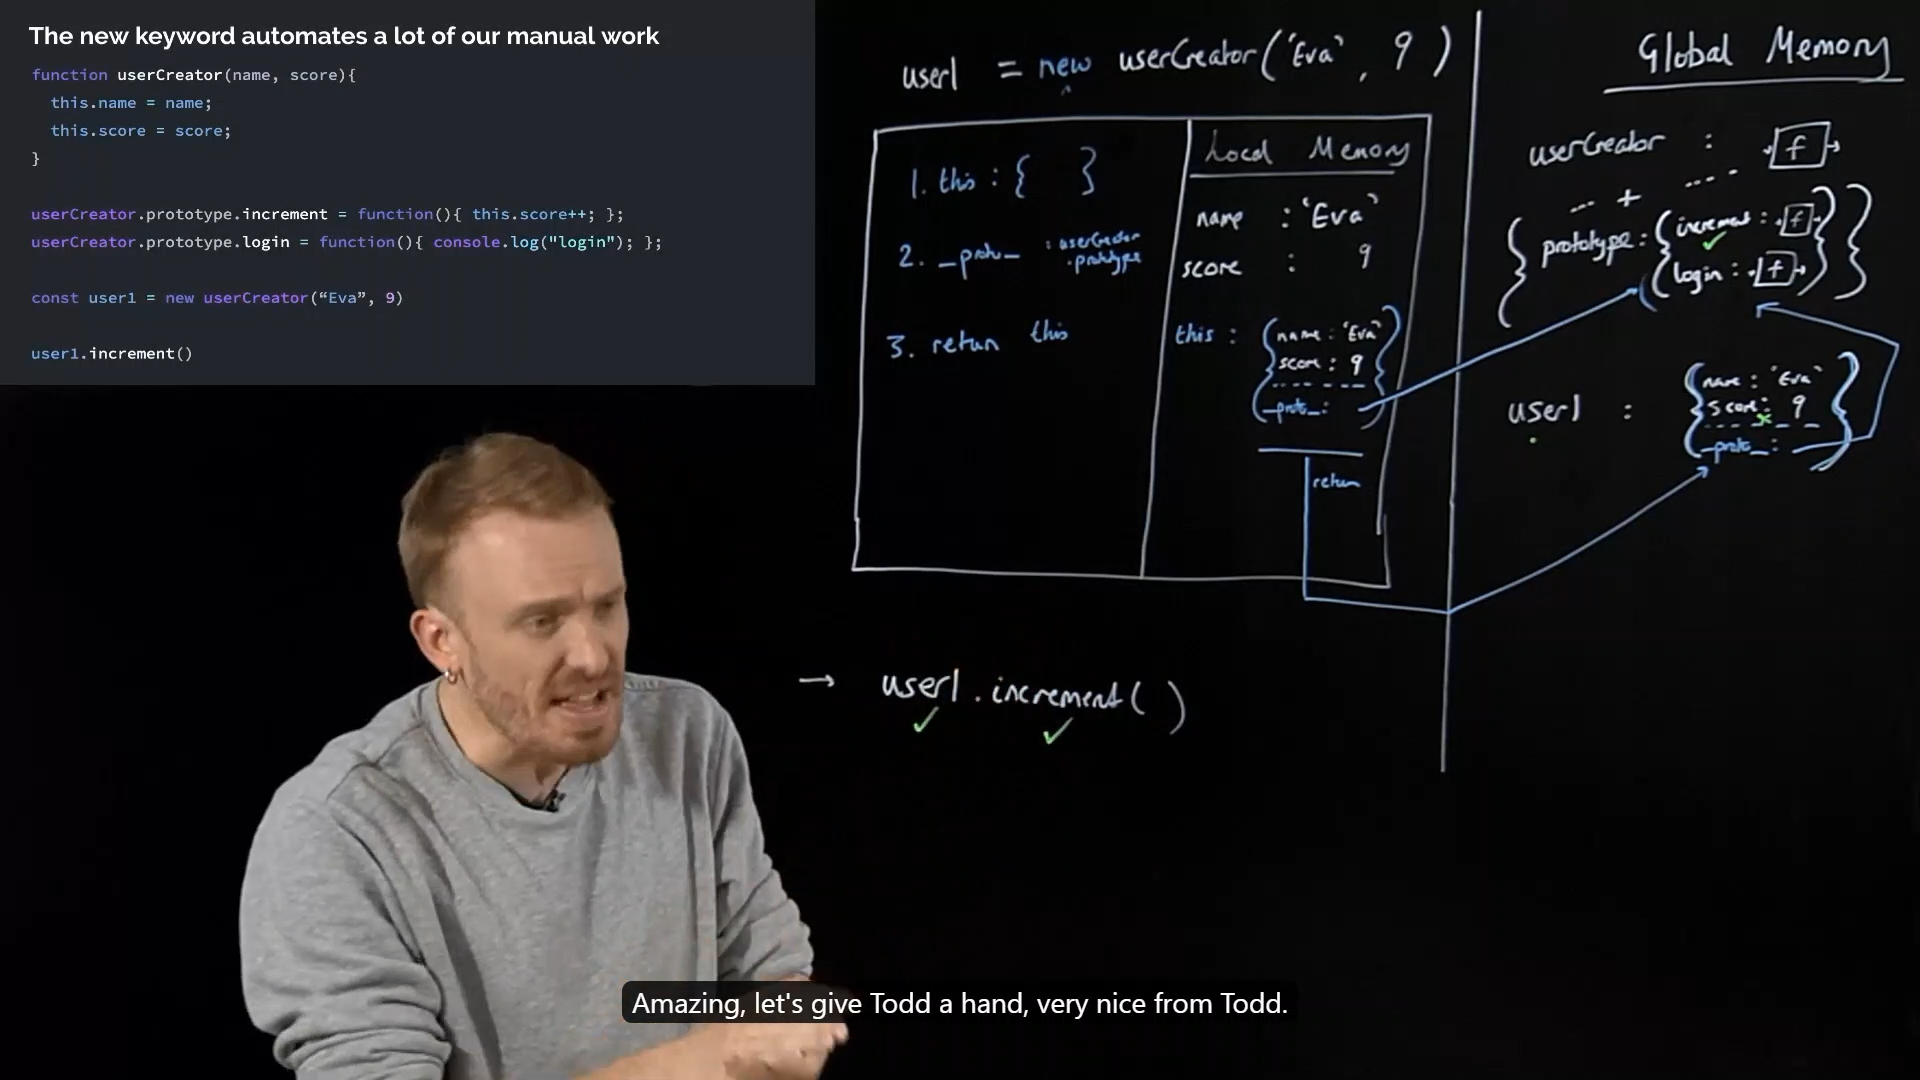 The new keyword automates a lot of our manual work
function userCreator(name, score){
this.name = name;
this.score = score;
}
userCreator.prototype.increment = function(){ this.score++; };
userCreator.prototype.login = function(){ console.log("login"); };
const user1 = new userCreator(“Eva”, 9)
user1.increment()
user1 = new userCreator('Eva', 9)
1. this : { }
2. _proto_ : userCreator
.prototype
3. return this
Local Memory
name : 'Eva'
score : 9
this : { name : 'Eva'
score : 9
_proto_: }
return
Global Memory
userCreator : f
+
{ prototype : { increment : f
login : f } }
user1 : { name : 'Eva'
score : 9
_proto_ : }
→ user1.increment( )
Amazing, let's give Todd a hand, very nice from Todd.